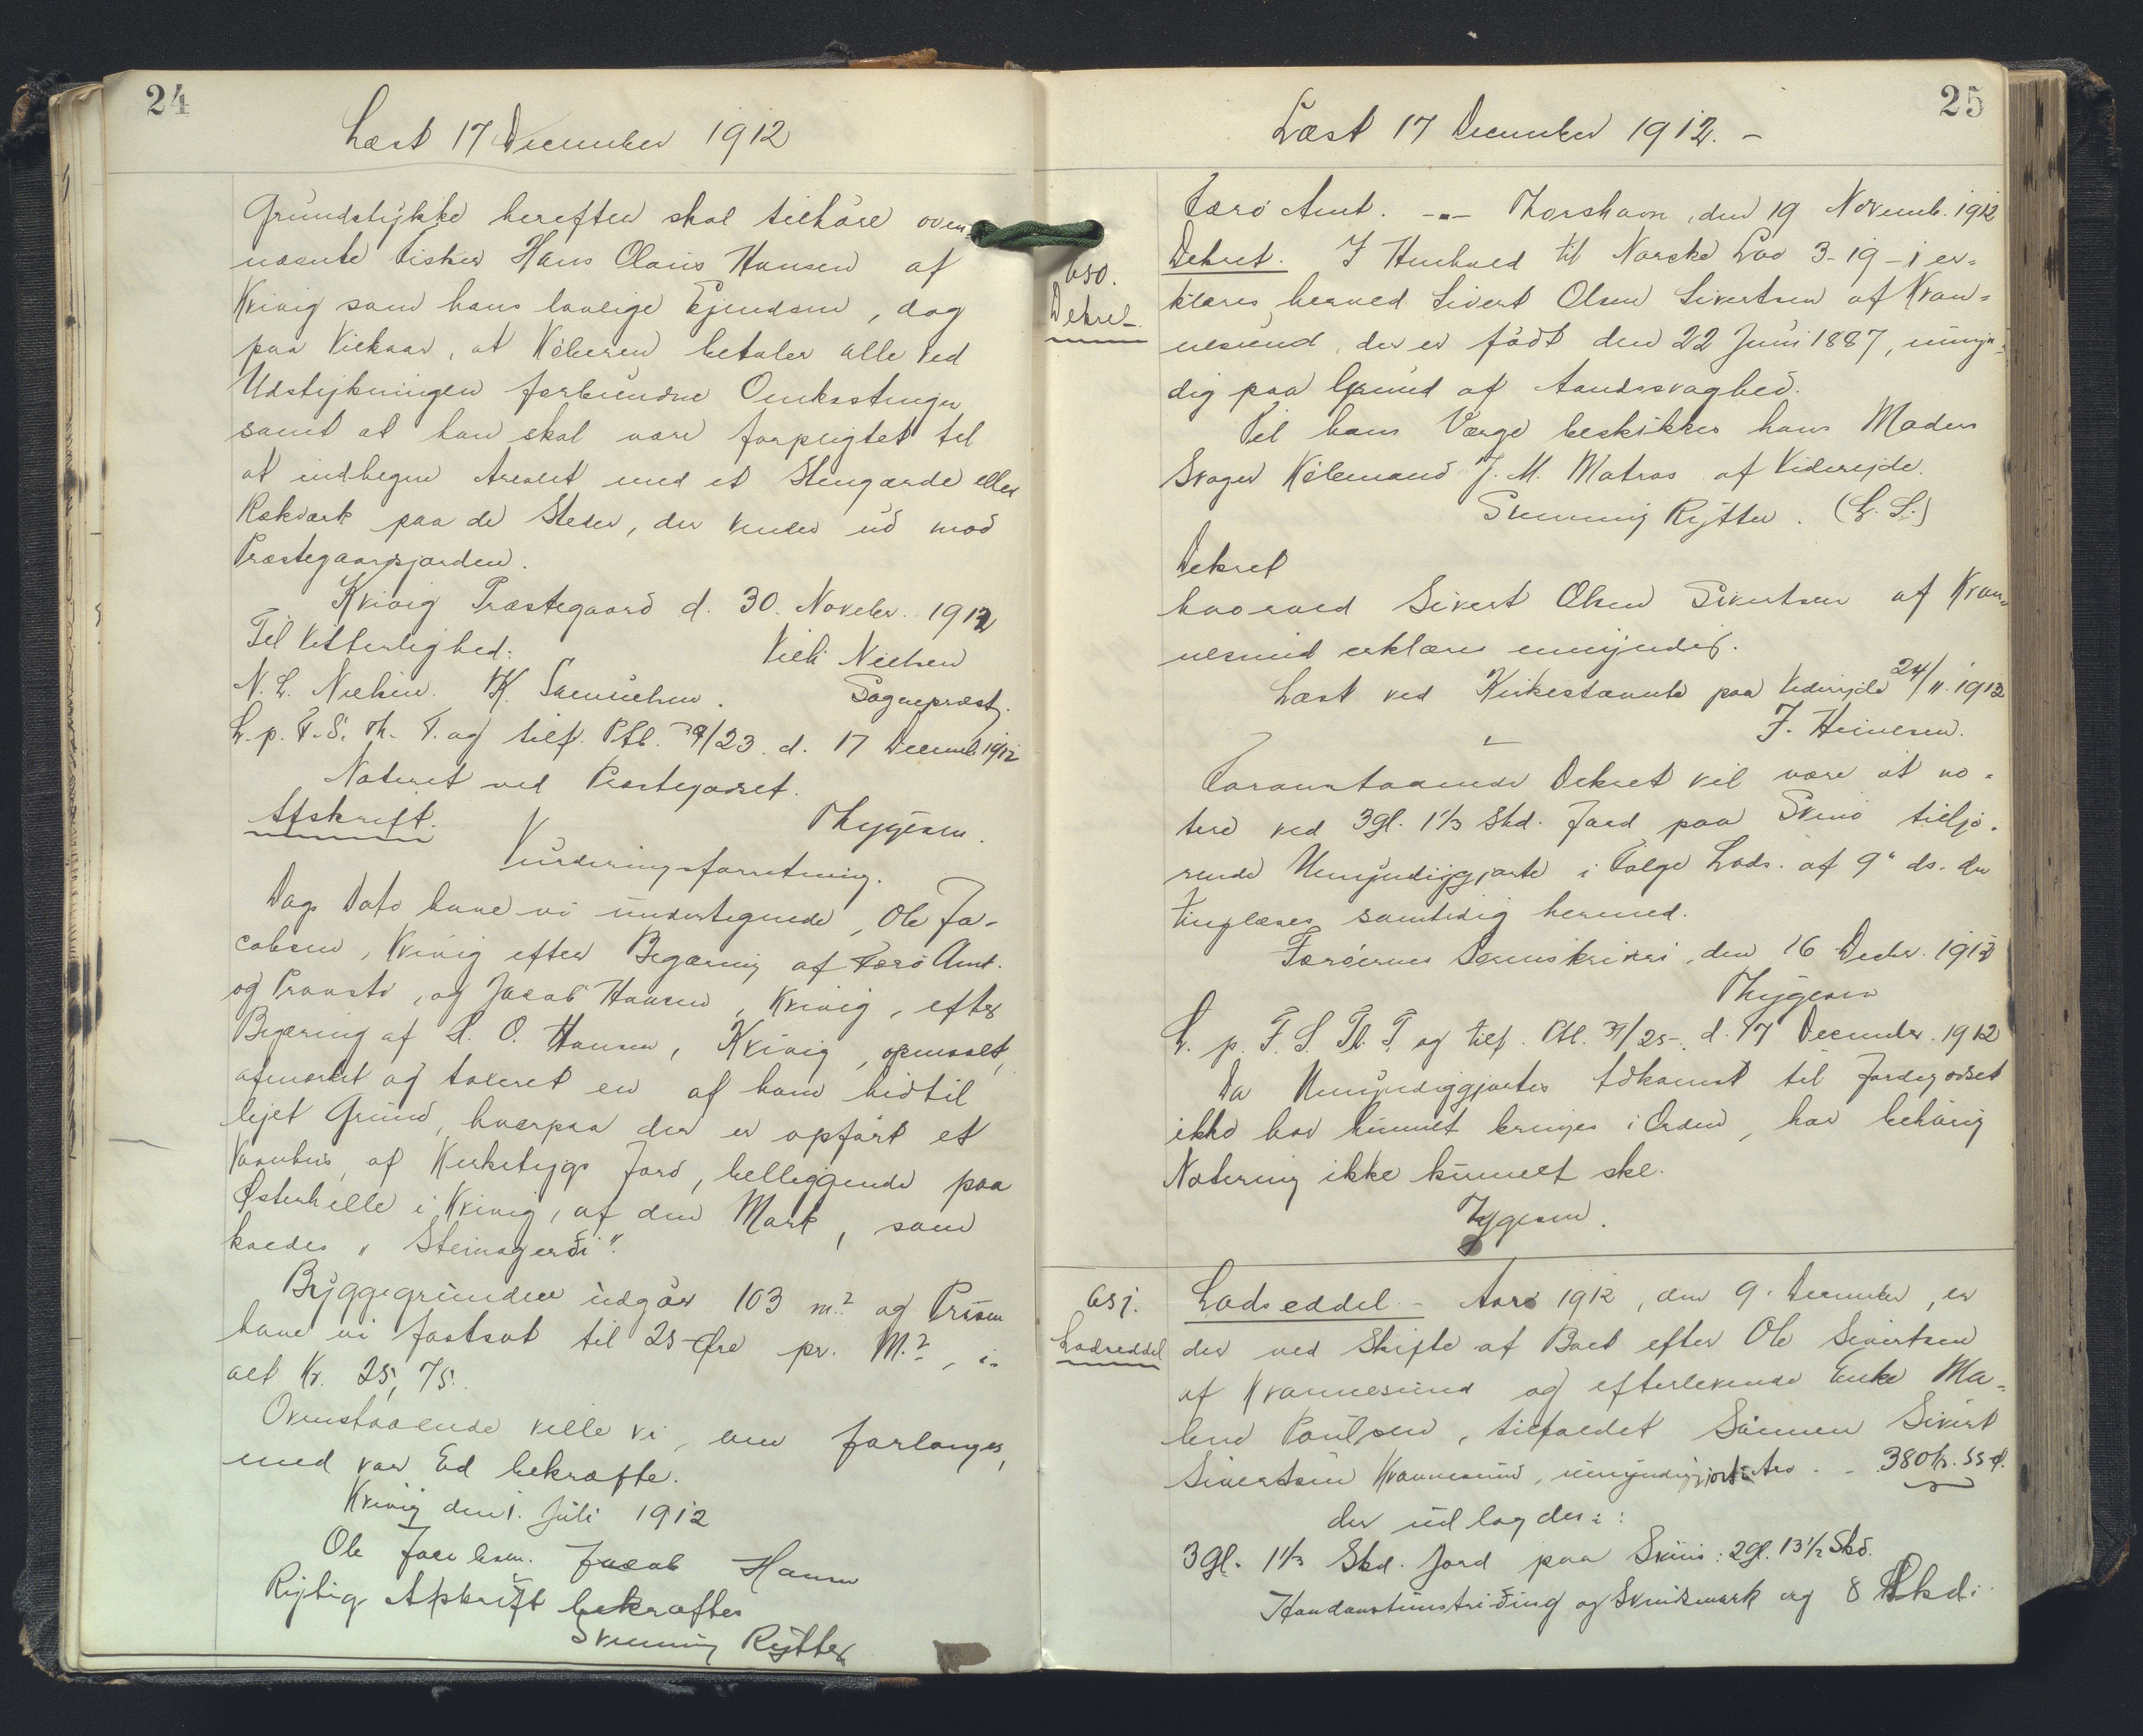 24
Læst 17 December 1912
Grundstykke herefter skal tilhøre oven-
nævnte Fisker Hans Olavis Hansen af
Kvivig som hans lovlige Ejendom, dog
paa Vilkaar, at Køberen betaler alle ved
Udstykningen forbundne Omkostninger,
samt at han skal være forpligtet til
at indhegne Arealet med et Stengærde eller
Rækværk paa de Steder, der vender ud mod
Præstegaardsjorden.
Kvivig Præstegaard d. 30. Novebr. 1912
Til Vitterlighed: Nielsen
N. L. Nielsen. K. Samuelsen. Sognepræst.
L. p. F. S. Th. T. og tilf. Ptb. 39/23 d. 17 Decemb. 1912
Noteret ved Præstegodset.
Thygesen.
Afskrift.
Vurderingsforretning.
Dags Dato have vi undertegnede, Ole Ja-
cobsen, Kvivig efter Begæring af Færø Amt.
og Provsti, og Jacob Hansen, Kvivig, efter
Begæring af H. O. Hansen, Kvivig, opmaalt,
afmærket og taxeret en af ham hidtil
lejet Grund, hvorpaa der er opført et
Vaanhus, af Kirketygs Jord, beliggende paa
Østerhelle i Kvivig, af den Mark, som
kaldes "Steinagerði".
Byggegrunden udgør 103 m.² og Prisen
have vi fastsat til 25 Øre pr. M.², i-
alt Kr. 25,75.
Ovenstaaende ville vi, om forlanges,
med vor Ed bekræfte.
Kvivig den 1. Juli 1912
Ole Jacobsen. Jacob Hansen
Rigtig Afskrift bekræftes
Svenning Rytter
25
Læst 17 December 1912. -
650.
Dekret.
Færø Amt. -- Thorshavn, den 19 Novemb. 1912
Dekret. I Henhold til Norske Lov 3-19-1 er-
klæres herved Sivert Olsen Sivertsen af Kvan-
nesund, der er født den 22 Juni 1887, umyn-
dig paa Grund af Aandssvaghed.
Til hans Værge beskikkes hans Moders
Svoger Købmand J. M. Matras af Viderejde.
Svenning Rytter. (L. S.)
Dekret
hvorved Sivert Olsen Sivertsen af Kvan-
nesund erklæres umyndig.
Læst ved Kirkestævnte paa Viderejde 24/11. 1912
J. Heinesen.
Foranstaaende Dekret vil være at no-
tere ved 3gl. 1⅓ Skd. Jord paa Svinø tilhø-
rende Umyndiggjorte i Følge Lods. af 9' ds. der
tinglæses samtidig hermed.
Færøernes Sorenskriveri, den 16 Decbr. 1912
Thygesen
L. p. F. S. Th. T. og tilf. Ptb. 39/25 d. 17 December 1912
Da Umyndiggjortes Adkomst til Jordegodset
ikke har kunnet bringes i Orden, har behørig
Notering ikke kunnet ske.
Tygesen.
651.
Lodseddel
Lodseddel - Aaro 1912, den 9. December, er
der ved Skifte af Boet efter Ole Sivertsen
af Kvannesund og efterlevende Enke Ma-
lene Poulsen, tilfaldet Sønnen Sivert
Sivertsen Kvannesund, umyndiggjort Arv - 380 Kr. 55 Ø.
der udlagdes:
3gl. 1⅓ Skd. Jord paa Svinø: 2gl. 13½ Skd.
og 8 Skd.